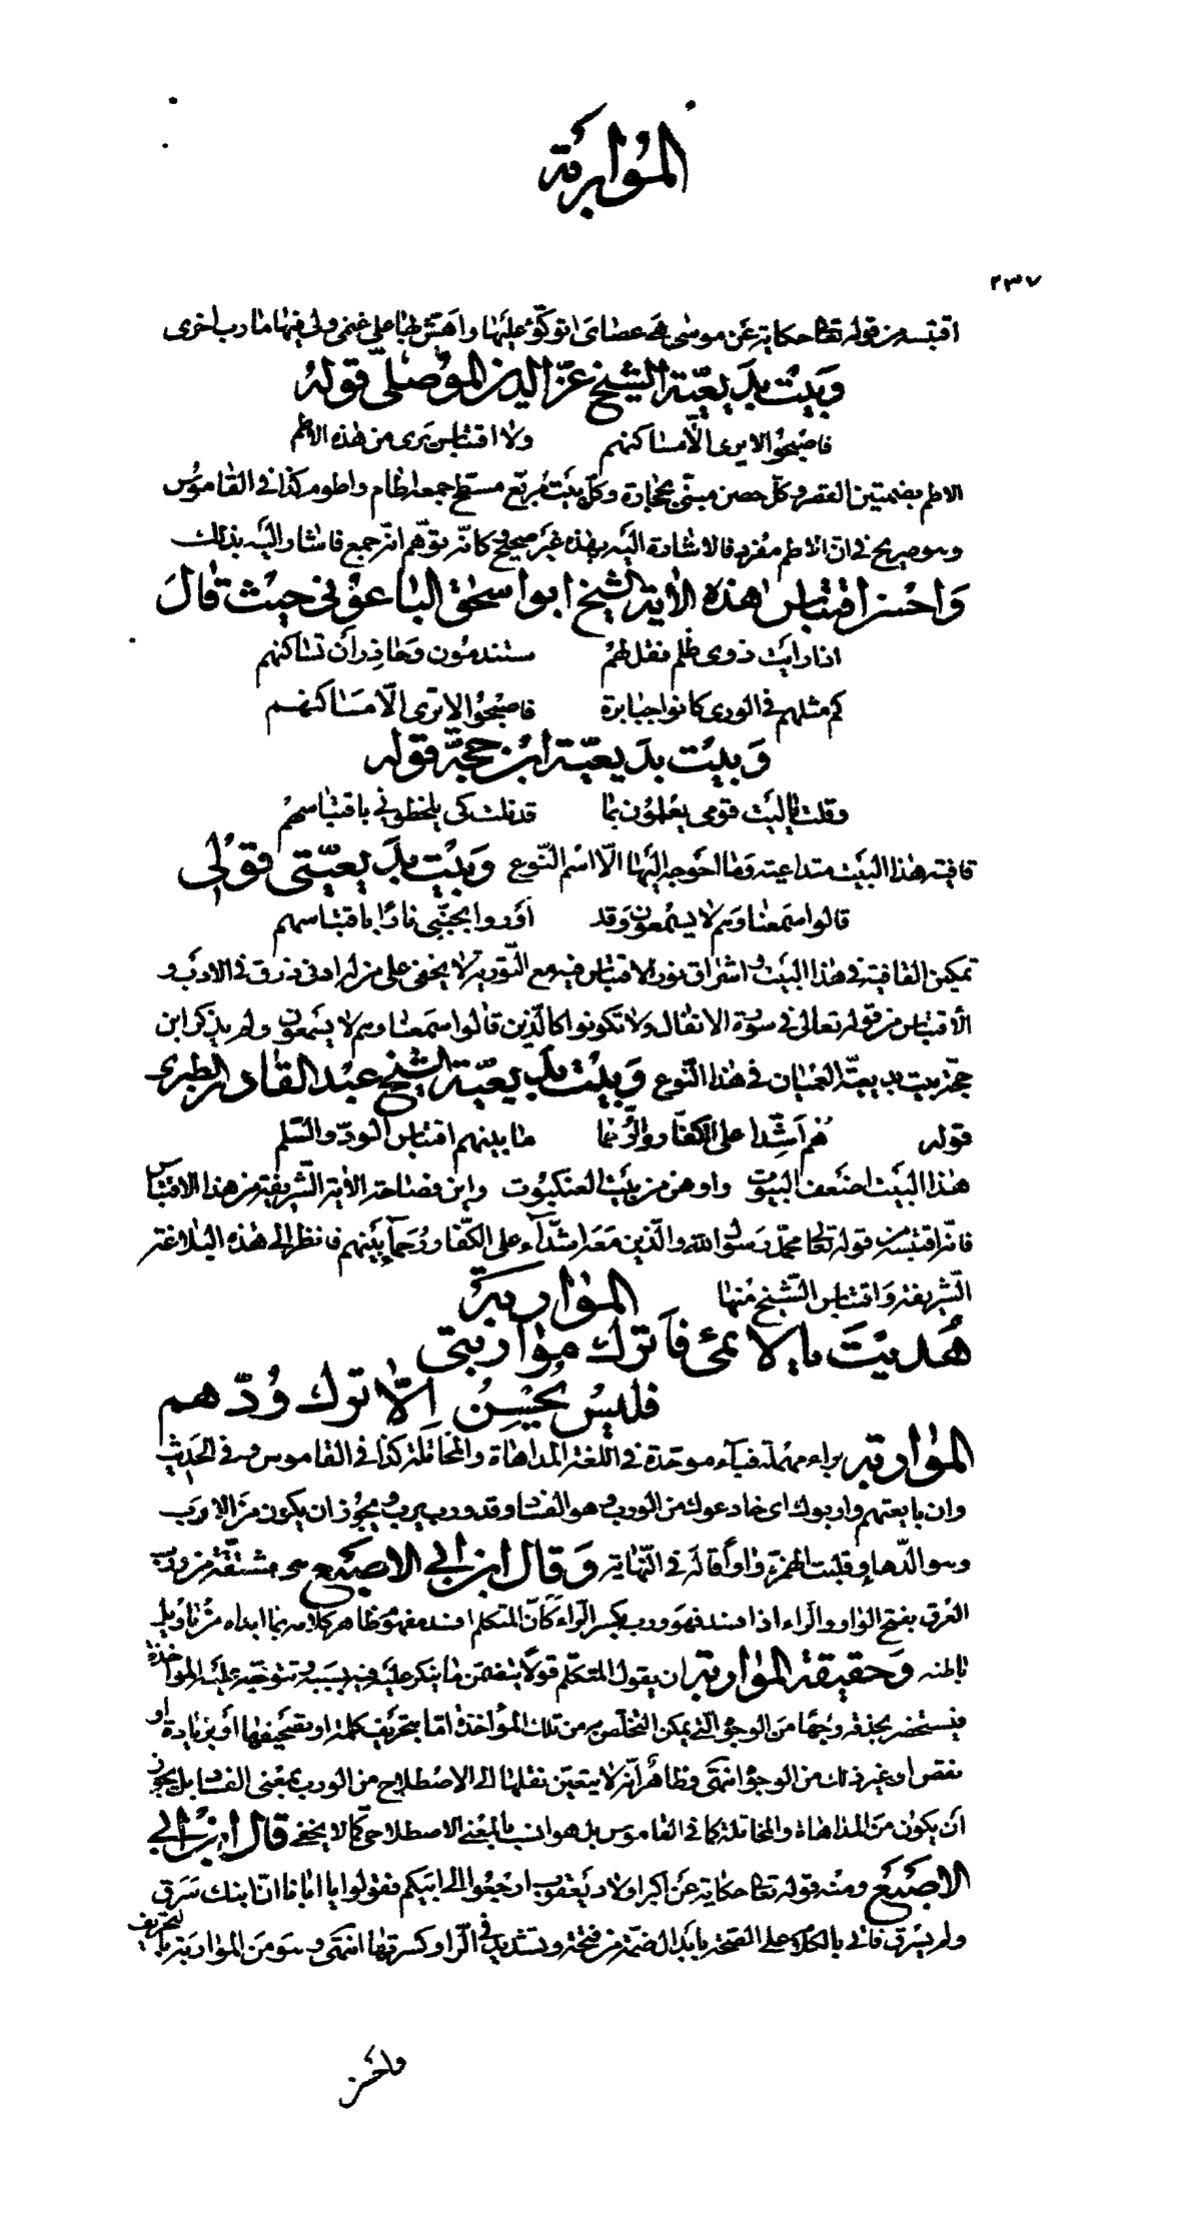 المواربة
٢٣٧
اقتبسه من قوله تعالى حكاية عن موسى هى عصاى اتوكؤ عليها واهش بها على غنمى ولى فيها مارب اخرى
وبيت بديعية الشيخ عز الدين الموصلى قوله
فاصبحوا لا يرى الا مساكنهم ولا اقتباس يرى من هذه الاطم
الاطم بضمتين القصر وكل حصن مبنى بحجارة وكل بيت مربع مسطح جمعه اطام واطوم كذا فى القاموس
وهو صريح فى ان الاطم مفرد فالاشارة اليه بهذه غير صحيح كانه توهم انه جمع فاشار اليه بذلك
واحسن اقتباس هذه الاية الشيخ ابو اسحق الباعونى حيث قال
اذا رايت ذوى ظلم فقل لهم ستندمون وحاذر أن تساكنهم
كم مثلهم فى الورى كانوا جبابرة فاصبحوا لا ترى الا مساكنهم
وبيت بديعية ابن حجة قوله
وقلت ياليت قومى يعلمون بما قد نلت كى يلحظونى باقتباسهم
قافية هذا البيت متداعية وما احوجه اليها الا اسم النوع وبيت بديعيتى قولى
قالوا سمعنا وهم لا يسمعون وقد أوروا بجنبى نارا باقتباسهم
تمكين القافية فى هذا البيت واشراق نور الاقتباس فيه مع التورية لا يخفى على من له ادنى ذوق فى الادب و
الأقتباس من قوله تعالى فى سورة الانفال ولا تكونوا كالذين قالوا سمعنا وهم لا يسمعون ولم يذكر ابن
حجة بيت بديعية العميان فى هذا النوع وبيت بديعية الشيخ عبد القادر الطبرى
قوله هم أشدا على الكفار والرحما ما بينهم اقتباس الود والسلم
هذا البيت اضعف البيوت واوهن من بيت العنكبوت واين فصاحة الاية الشريفة من هذا الاقتباس
فانه اقتبسه من قوله تعالى محمد رسول الله والذين معه اشدآء على الكفار رحمآء بينهم فانظر الى هذه البلاغة
الشريفة واقتباس الشيخ منها المواربة
هديت يا لائمى فاترك مواربتى
فليس يحسن الا ترك ودهم
المواربة براء مهملة فبآء موحدة فى اللغة المداهاة والمخاتلة كذا فى القاموس وفى الحديث
وان بايعتهم واربوك اى خادعوك من الورب وهو الفساد وقد ورب يرب ويجوز ان يكون من الارب
وهو الدهاء وقلبت الهمزة واوا قاله فى النهاية وقال ابن ابى الاصبع هى مشتقة من ورب
العرق بفتح الواو والراء اذا فسد فهو ورب بكسر الراء كأن المتكلم افسد مفهوم ظاهر كلامه بما ابداه من تاويل
باطنه وحقيقة المواربة ان يقول المتكلم قولا يتضمن ما ينكر عليه فيه بسببه وتتوجه عليه المواخذة
فيستحضر بحذقه وجها من الوجوه التى يمكن التخلص به من تلك المؤاخذة اما بتحريف كلمة او تصحيفها أو بزيادة او
نقص او غير ذلك من الوجوه انتهى وظاهر أنه لا يتعين نقلها الى الاصطلاح من الورب بمعنى الفساد بل يجوز
أن يكون من المداهاة والمخاتلة كما فى القاموس بل هو انسب بالمعنى الاصطلاحى كما لا يخفى قال ابن ابى
الاصبع ومنه قوله تعالى حكاية عن اكبر اولاد يعقوب ارجعوا الى ابيكم فقولوا يا ابانا ان ابنك سرق
ولم يسرق فاتى بالكلام على الصحة بابدال ضمة من فتحة وتشديد فى الراء وكسرتها انتهى وهو من المواربة بالتحريف
واحسن